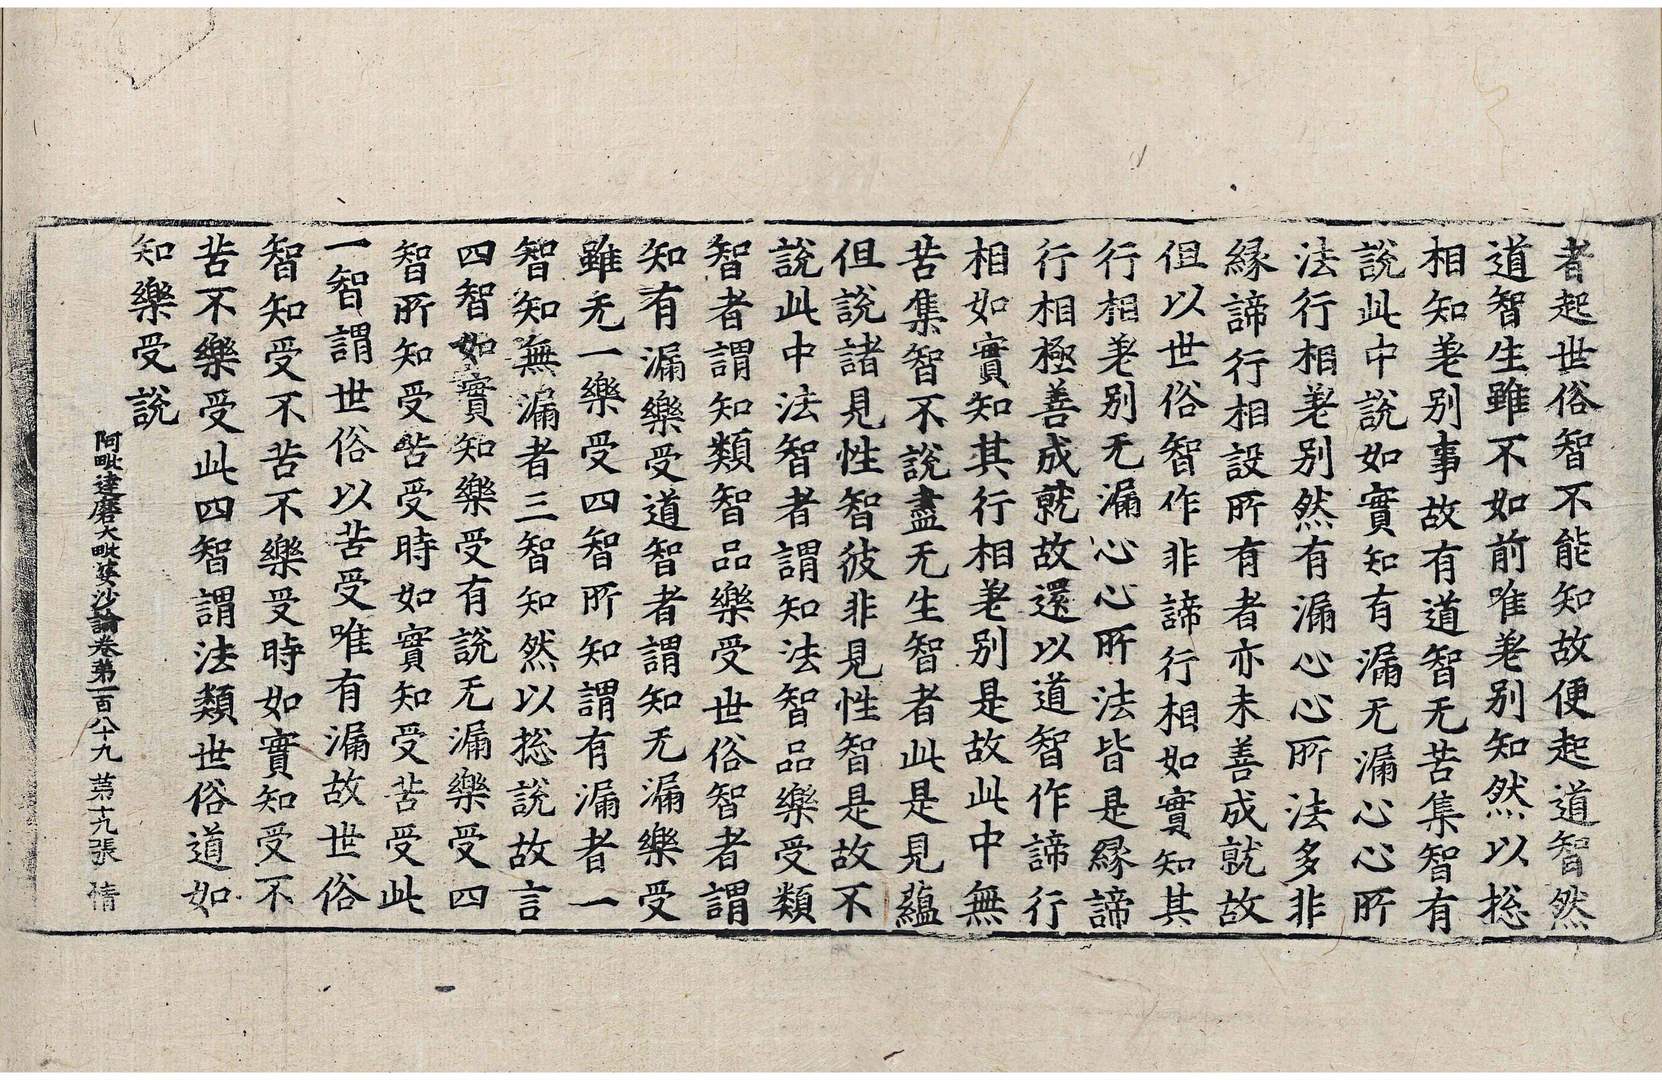 者起世俗智不能知故便起道智然
道智生雖不如前唯差別知然以揔
相知差別事故有道智无苦集智有
說此中說如實知有漏无漏心心所
法行相差別然有漏心心所法多非
縁諦行相設所有者亦未善成就故
但以世俗智作非諦行相如實知其
行相差別无漏心心所法皆是縁諦
行相極善成就故還以道智作諦行
相如實知其行相差別是故此中無
苦集智不說盡无生智者此是見蘊
但說諸見性智彼非見性智是故不
說此中法智者謂知法智品樂受類
智者謂知類智品樂受世俗智者謂
知有漏樂受道智者謂知无漏樂受
雖无一樂受四智所知謂有漏者一
智知無漏者三智知然以揔說故言
四智如實知樂受有說无漏樂受四
智所知受苦受時如實知受苦受此
一智謂世俗以苦受唯有漏故世俗
智知受不苦不樂受時如實知受不
苦不樂受此四智謂法類世俗道如
知樂受說
阿毗達磨大毗婆沙論卷第一百八十九 第十九張 情